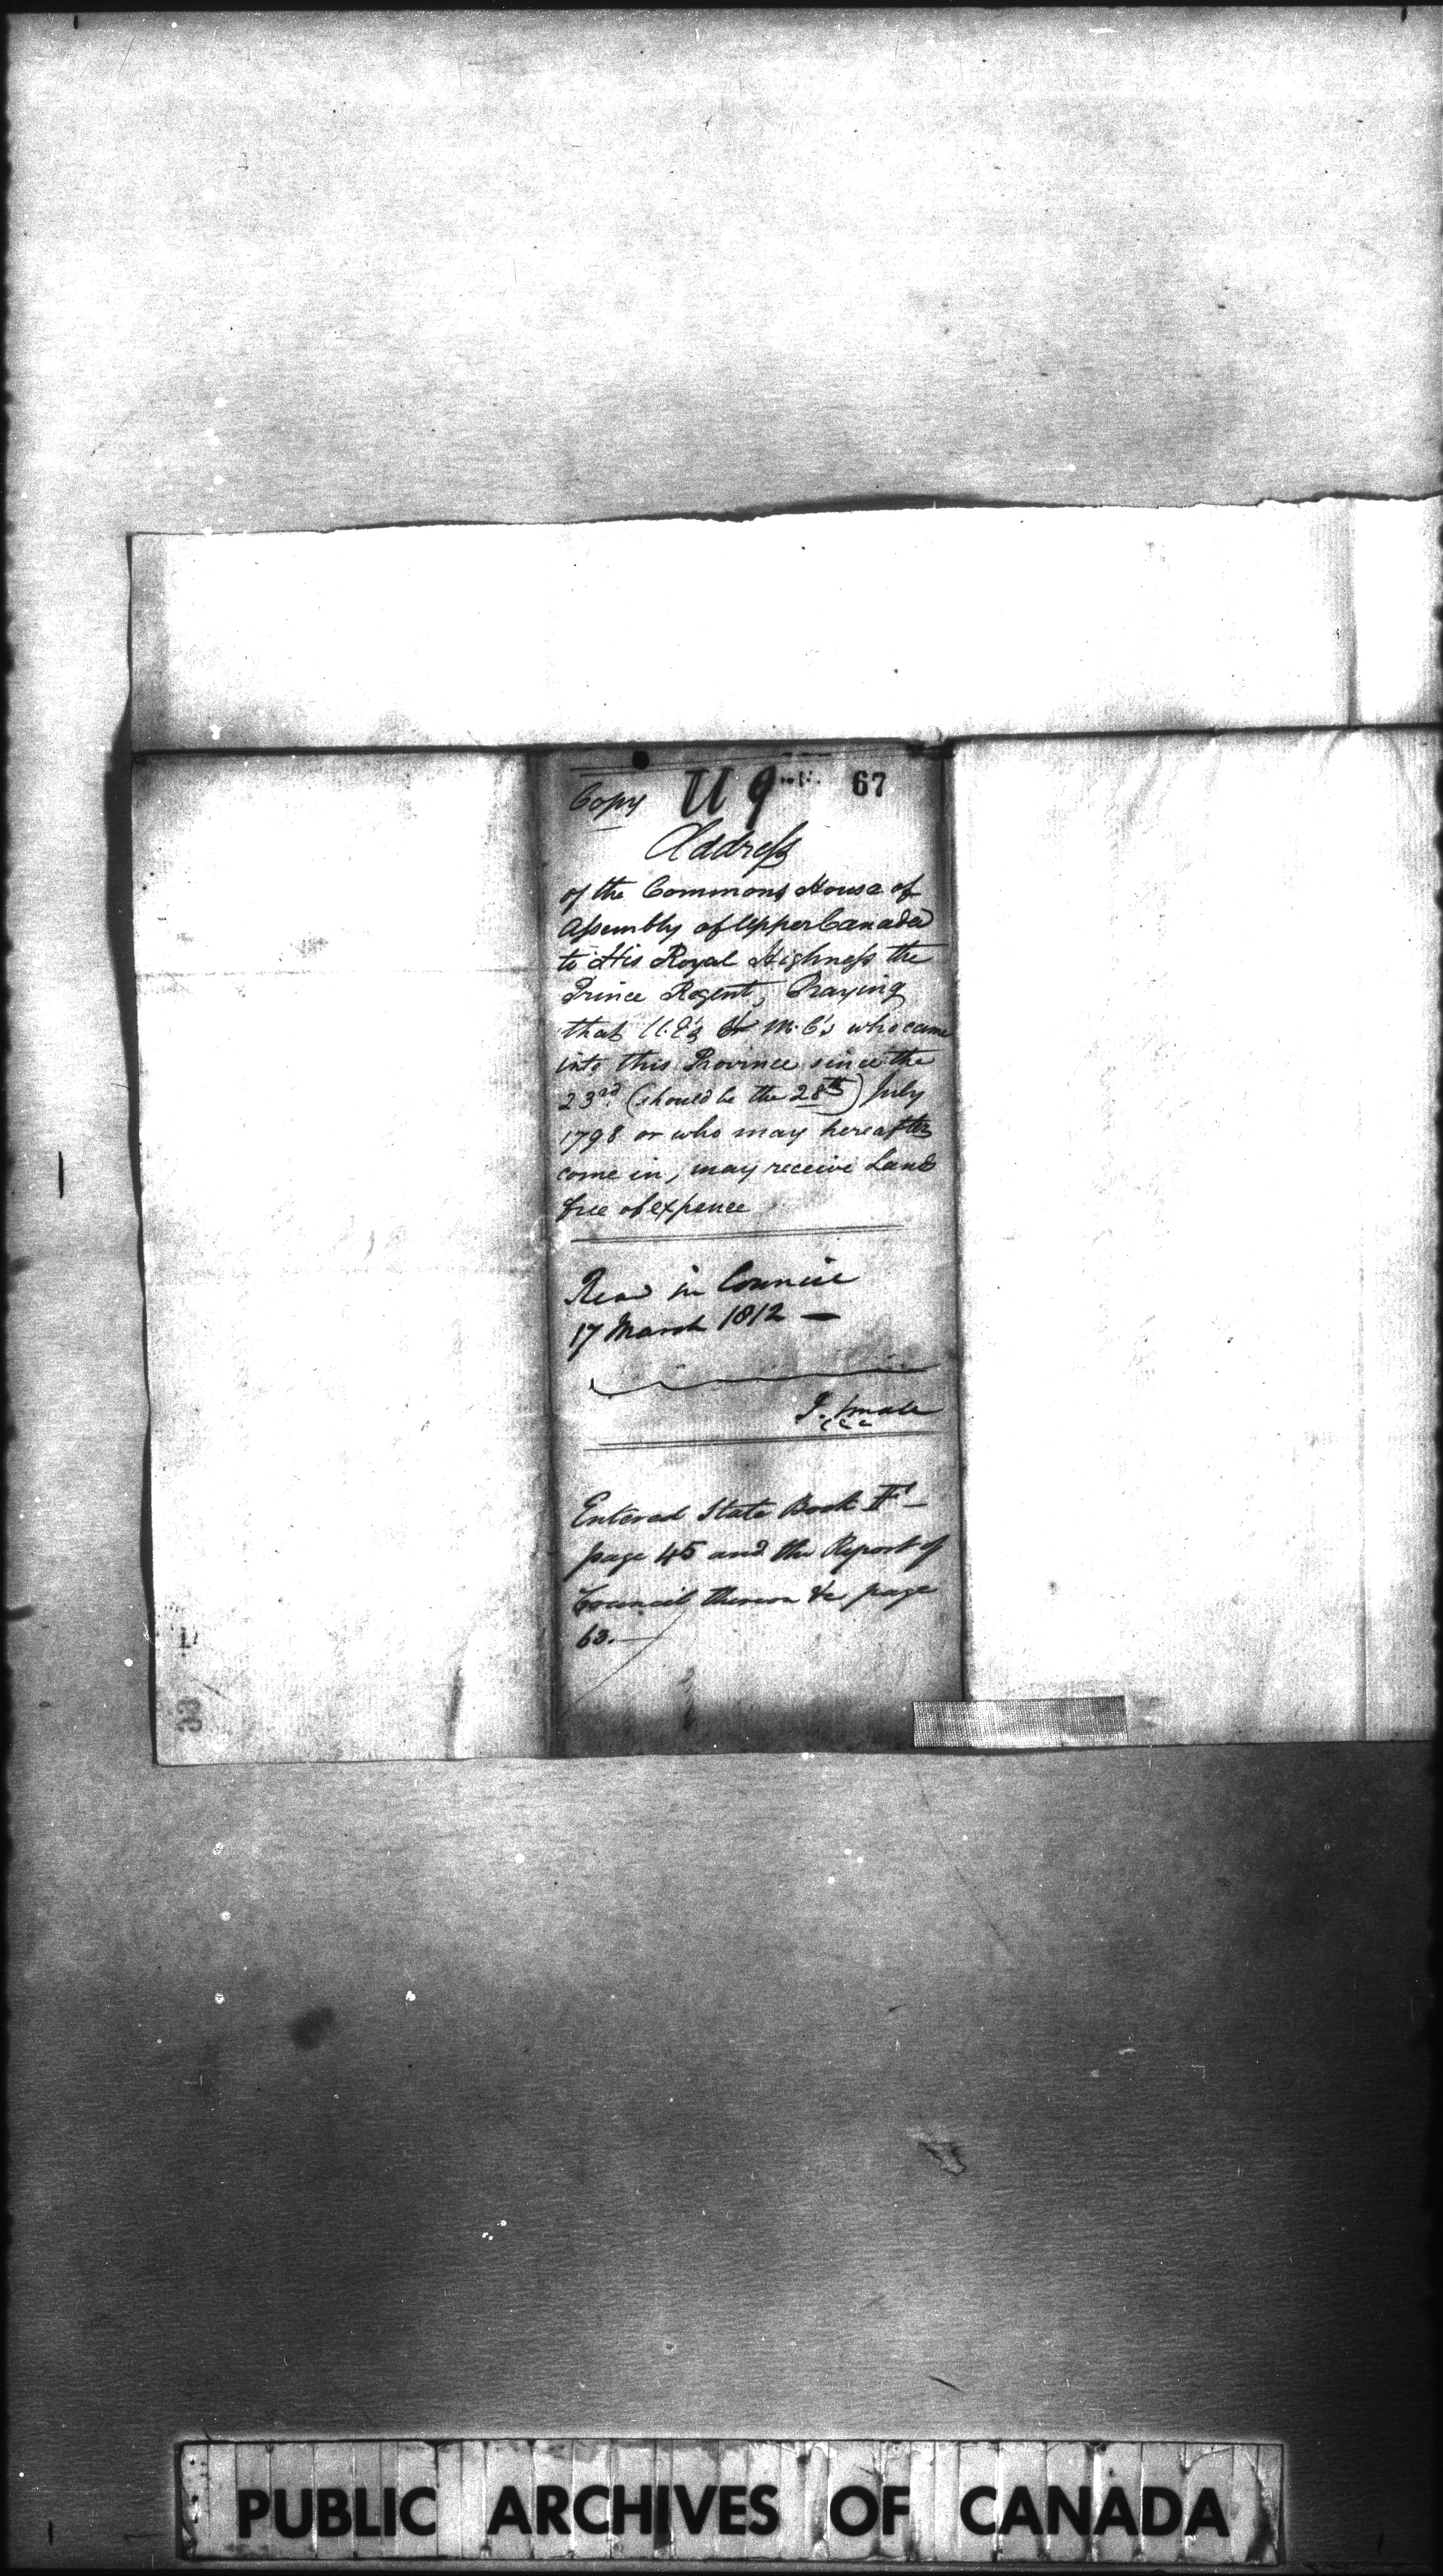 Copy U 9 67
Address
of the Commons House of
Assembly of Upper Canada
to His Royal Highness the
Prince Regent, Praying
that U.E's & M.C's who came
into this Province since the
23rd (should be the 28th) July
1798 or who may hereafter
come in, may receive Lands
free of expence
Read in Council
17 March 1812 —
J. Small
C C C
Entered State Book F —
page 45 and the Report of
Council thereon &c page
63. —
PUBLIC ARCHIVES OF CANADA